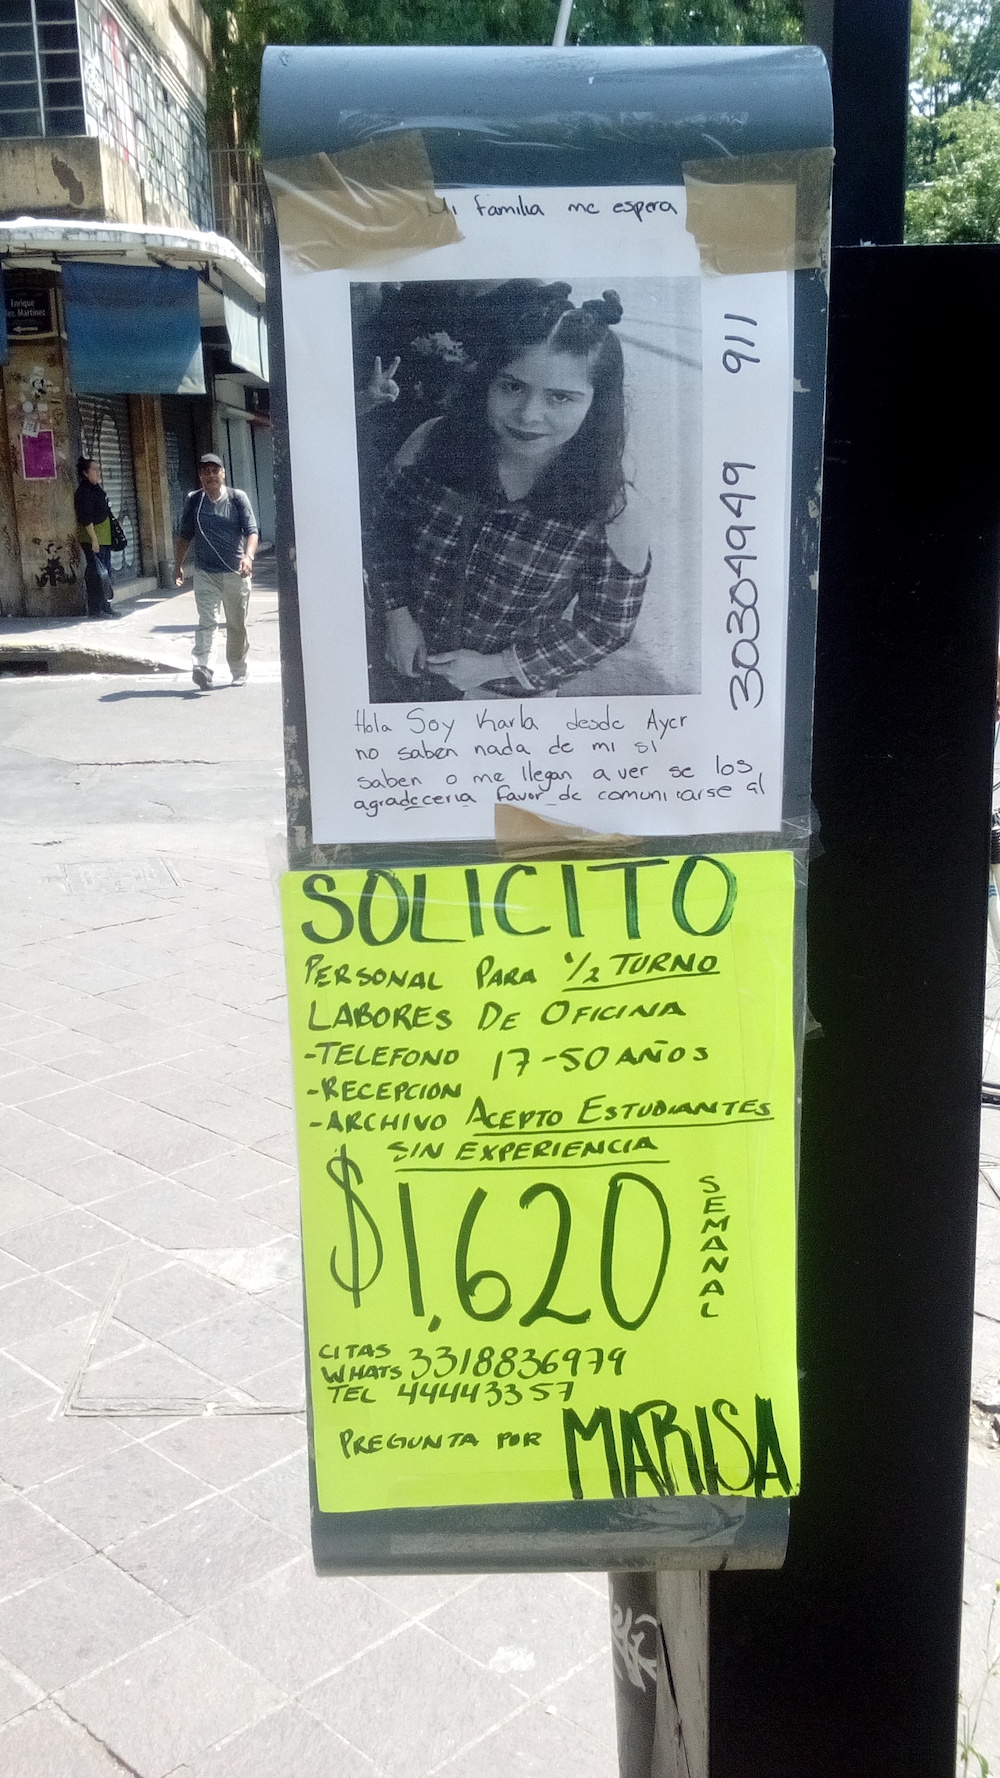 Mi familia me espera
911
30304949
Hola Soy Karla desde Ayer
no saben nada de mi si
saben o me llegan a ver se los
agradeceria favor de comunicarse al
SOLICITO
PERSONAL PARA 1/2 TURNO
LABORES DE OFICINA
-TELEFONO 17-50 AÑOS
-RECEPCION
-ARCHIVO ACEPTO ESTUDIANTES
SIN EXPERIENCIA
$1,620 SEMANAL
CITAS
WHATS 3318836979
TEL 44443357
PREGUNTA POR MARISA
Enrique
Martinez